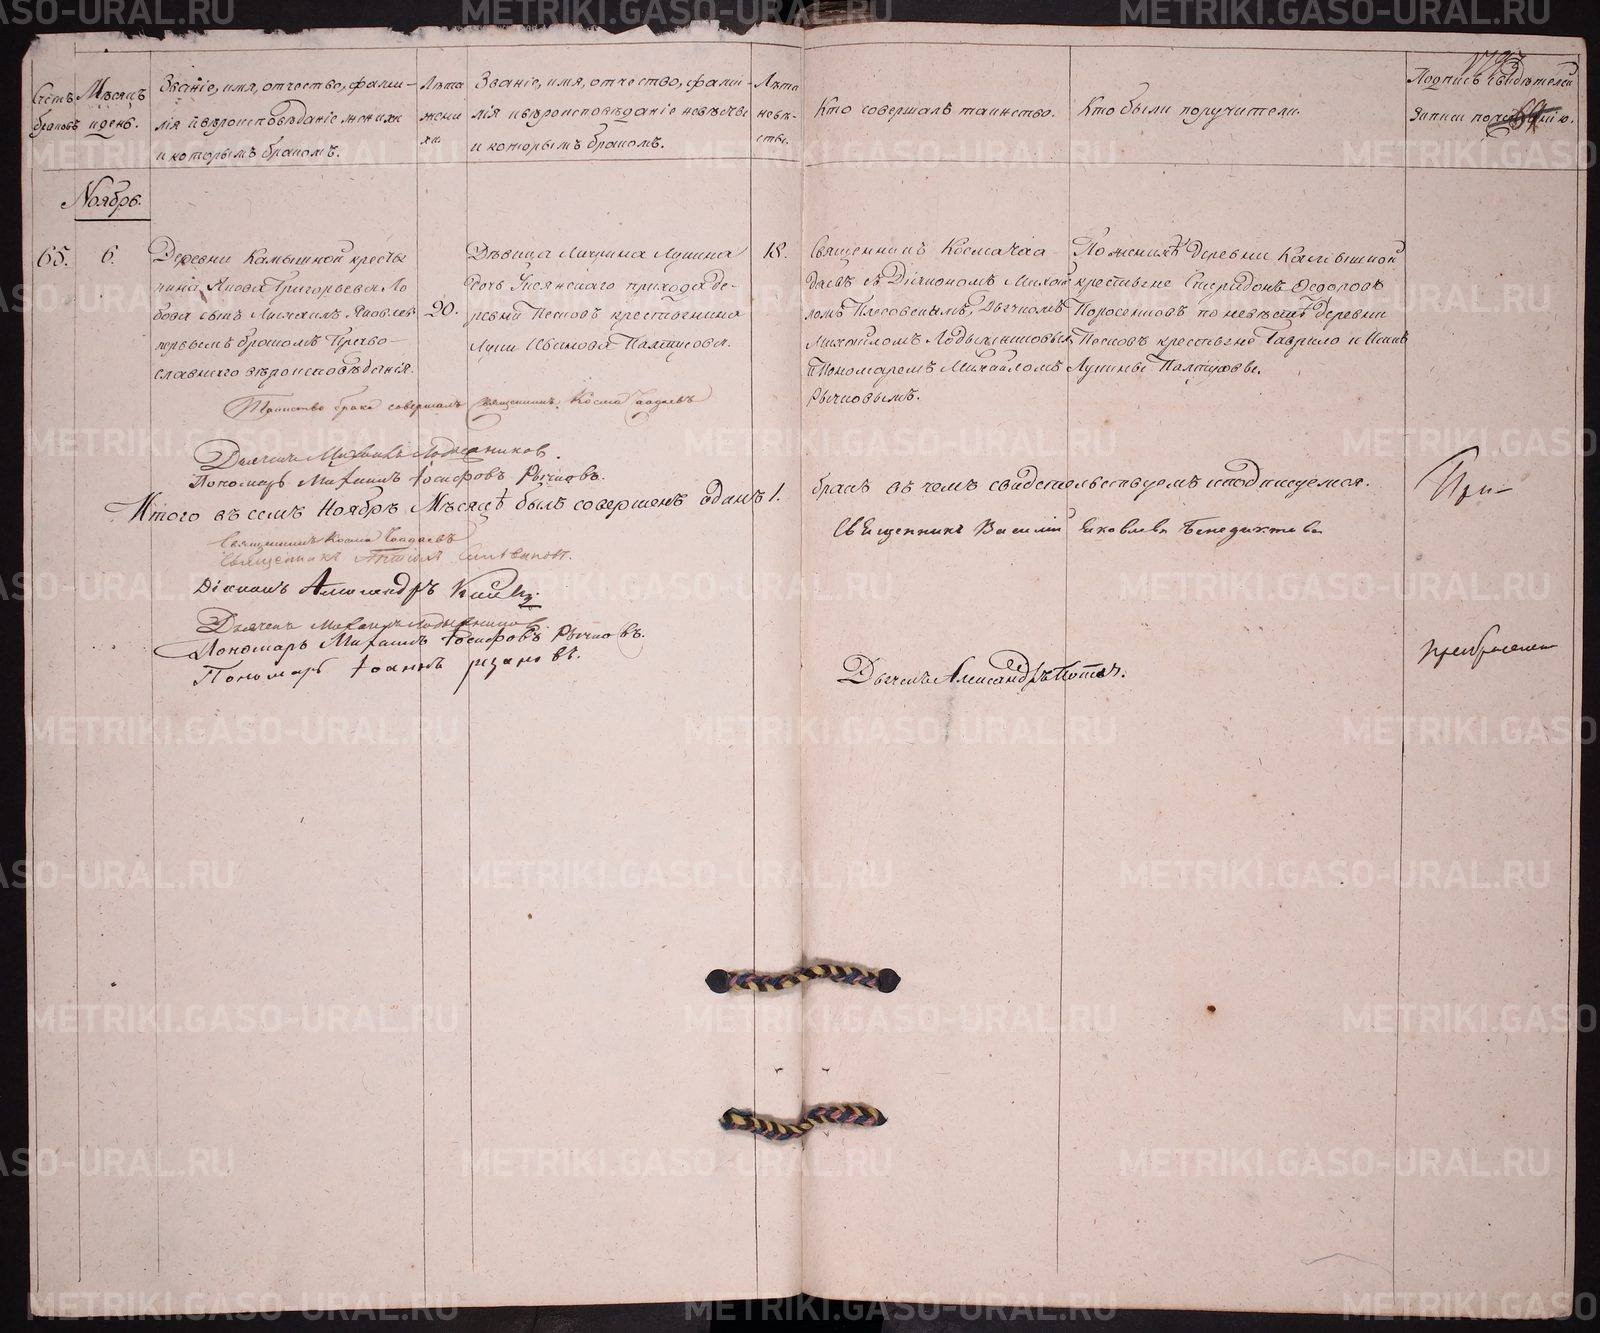 Счетъ браковъ
Мѣсяцъ и день.
Званіе, имя, отчество, фами-
лія и вѣроисповѣданіе жениха
и которымъ бракомъ.
Лѣта
жени
ха.
Званіе, имя, отчество, фами-
лія и вѣроисповѣданіе невѣсты
и которымъ бракомъ.
Лѣта
невѣ-
сты.
Кто совершалъ таинство.
Кто были поручители.
Подпись свидѣтелей
записи по
Ноябрь.
65.
6.
Деревни Камышной крестья
нина Якова Григорьева Ло
бова сынъ Яковлевъ
первымъ бракомъ Право-
славнаго вѣроисповѣданія.
20.
Дѣвица Лукина
дочь Уксянскаго прихода де-
ревни Песковъ крестьянина
Луки Иванова Палтусова.
18.
Священникъ Косма Чаа-
даевъ съ Діакономъ Михаи
ломъ Плесовскимъ, Дьячкомъ
Михаиломъ
Пономаремъ Михаиломъ
Рычковымъ.
По женихѣ деревни Камышной
крестьяне Спиридонъ Ѳедоровъ
Поросенковъ по невѣстѣ деревни
Песковъ крестьяне Гаврило и
Лукины Палтусовы.
Таинство брака совершалъ священникъ Косма Чаадаевъ
Дьячекъ Михаилъ
Пономарь Михаилъ Іосифовъ Рычковъ.
Итого въ семъ Ноябрѣ Мѣсяцѣ былъ совершенъ одинъ 1.
бракъ въ чемъ свидѣтельствуемъ и подписуемся.
При-
Священникъ Косма Чаадаевъ
Священникъ Василій Яковлевъ Бенедиктовъ
Священникъ
Діаконъ Александръ
Дьячекъ Михаилъ
Пономарь Михаилъ Іосифовъ Рычковъ.
Пономарь Іоаннъ
Дьячекъ Александръ
METRIKI.GASO-URAL.RU